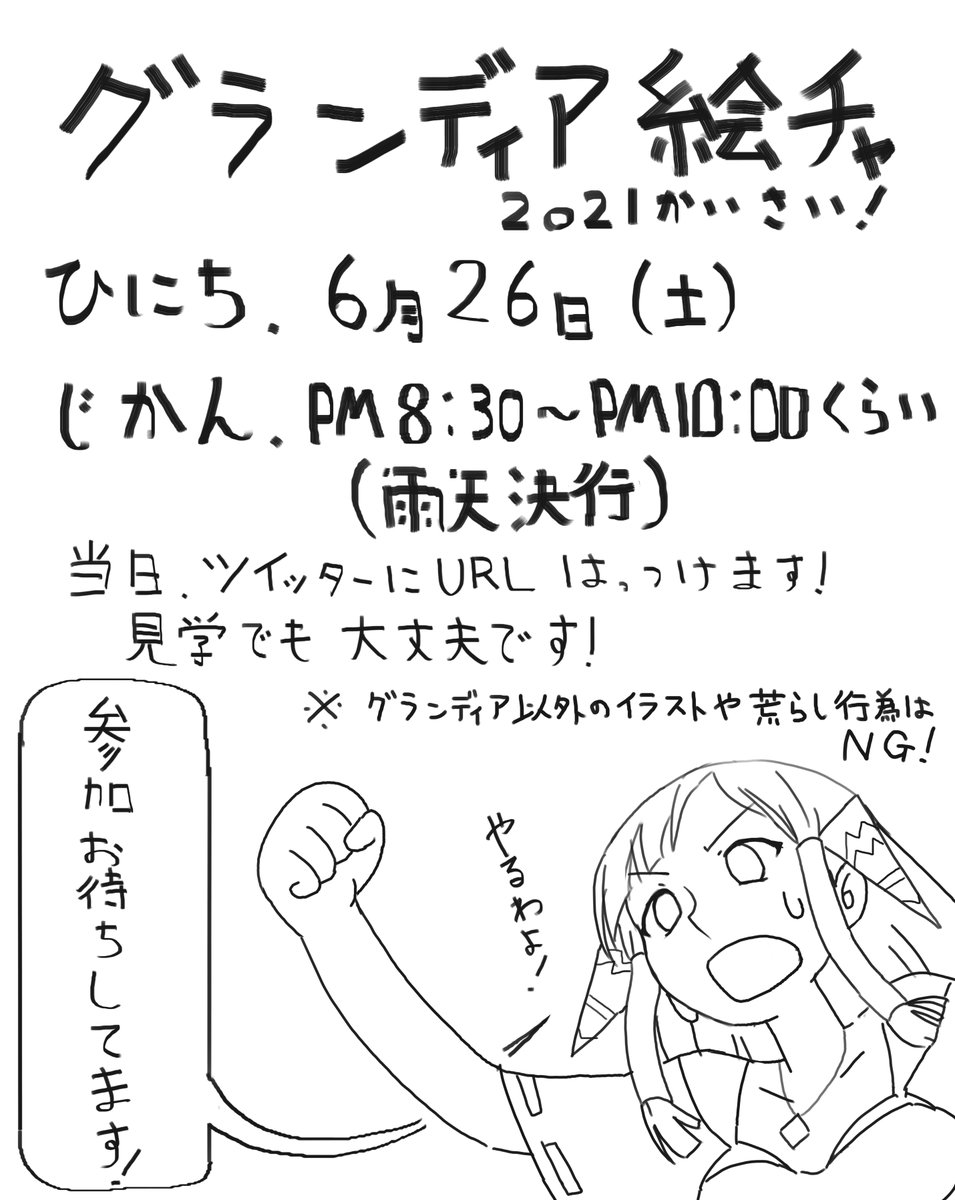 グランディア絵チャ
2021かいさい!
ひにち. 6月26日(土)
じかん. PM8:30~PM10:00くらい
(雨天決行)
当日.ツイッターにURLはっつけます!
見学でも大丈夫です!
※グランディア以外のイラストや荒らし行為は
NG!
やるわよ!
参加お待ちしてます!